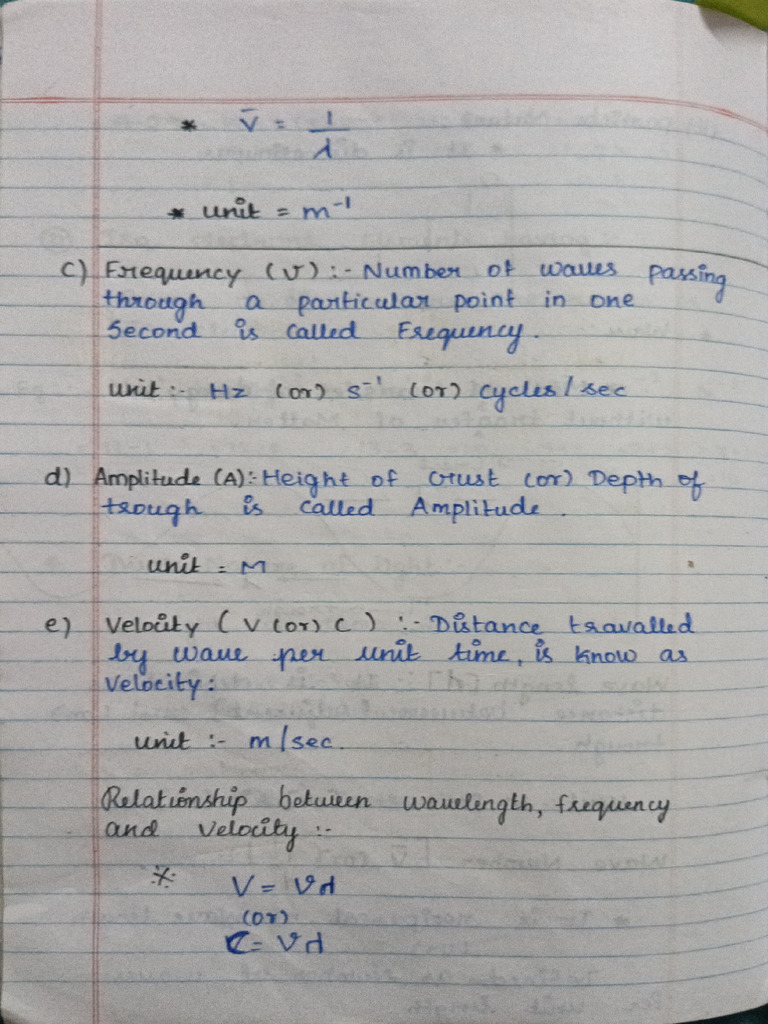 * v̄ = 1/λ
* unit = m⁻¹
c) Frequency (ν) :- Number of waves passing
through a particular point in one
Second is called Frequency.
unit :- Hz (or) s⁻¹ (or) cycles/sec
d) Amplitude (A):- Height of crust (or) Depth of
trough is called Amplitude.
unit = M
e) Velocity (V (or) C) :- Distance travalled
by wave per unit time, is know as
Velocity:
unit :- m/sec.
Relationship between wavelength, frequency
and velocity :-
* V = νλ
(or)
C = νλ